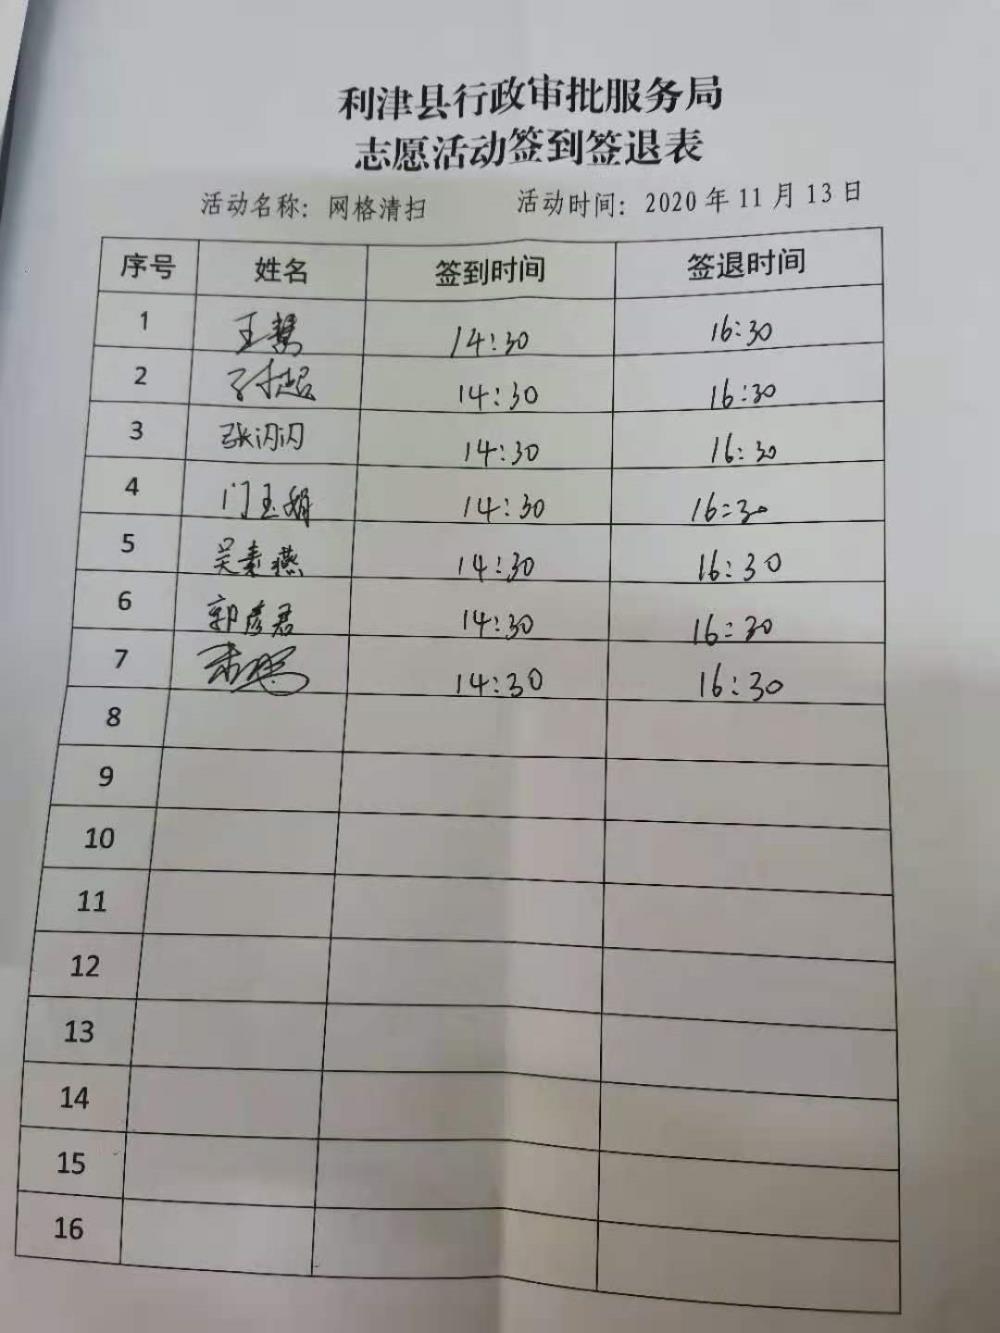 利津县行政审批服务局
志愿活动签到签退表
活动名称：网格清扫 活动时间：2020年11月13日
序号 姓名 签到时间 签退时间
1 王慧 14:30 16:30
2 14:30 16:30
3 张闪闪 14:30 16:30
4 门玉娟 14:30 16:30
5 吴素燕 14:30 16:30
6 郭彦君 14:30 16:30
7 14:30 16:30
8
9
10
11
12
13
14
15
16